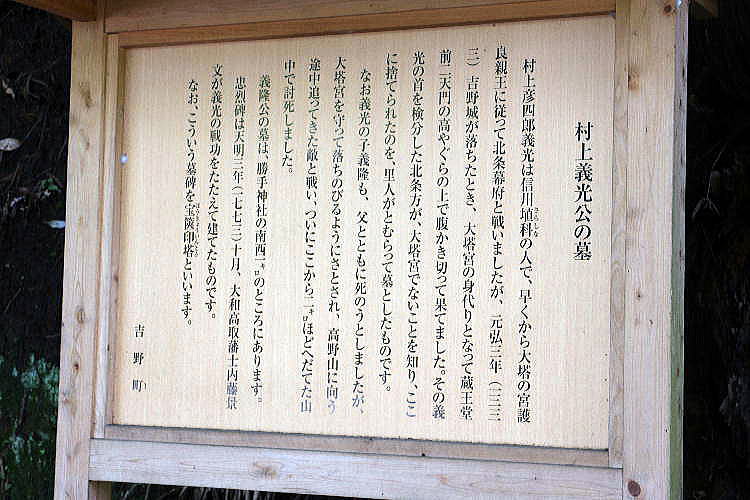 村上義光公の墓
村上彦四郎義光は信川埴科の人で、早くから大塔の宮護
さらしな
良親王に従って北条幕府と戦いましたが、元弘三年（一三三
三）吉野城が落ちたとき、大塔宮の身代りとなって蔵王堂
前二天門の高やぐらの上で腹かき切って果てました。その義
光の首を検分した北条方が、大塔宮でないことを知り、ここ
に捨てられたのを、里人がとむらって墓としたものです。
なお義光の子義隆も、父とともに死のうとしましたが、
大塔宮を守って落ちのびるようにさとされ、高野山に向う
途中追ってきた敵と戦い、ついにここから二㌔ほどへだてた山
中で討死しました。
義隆公の墓は、勝手神社の南西一㌔のところにあります。
忠烈碑は天明三年（一七七三）十月、大和高取藩士内藤景
文が義光の戦功をたたえて建てたものです。
なお、こういう墓碑を宝篋印塔といいます。
ほうきょういんとう
吉野町